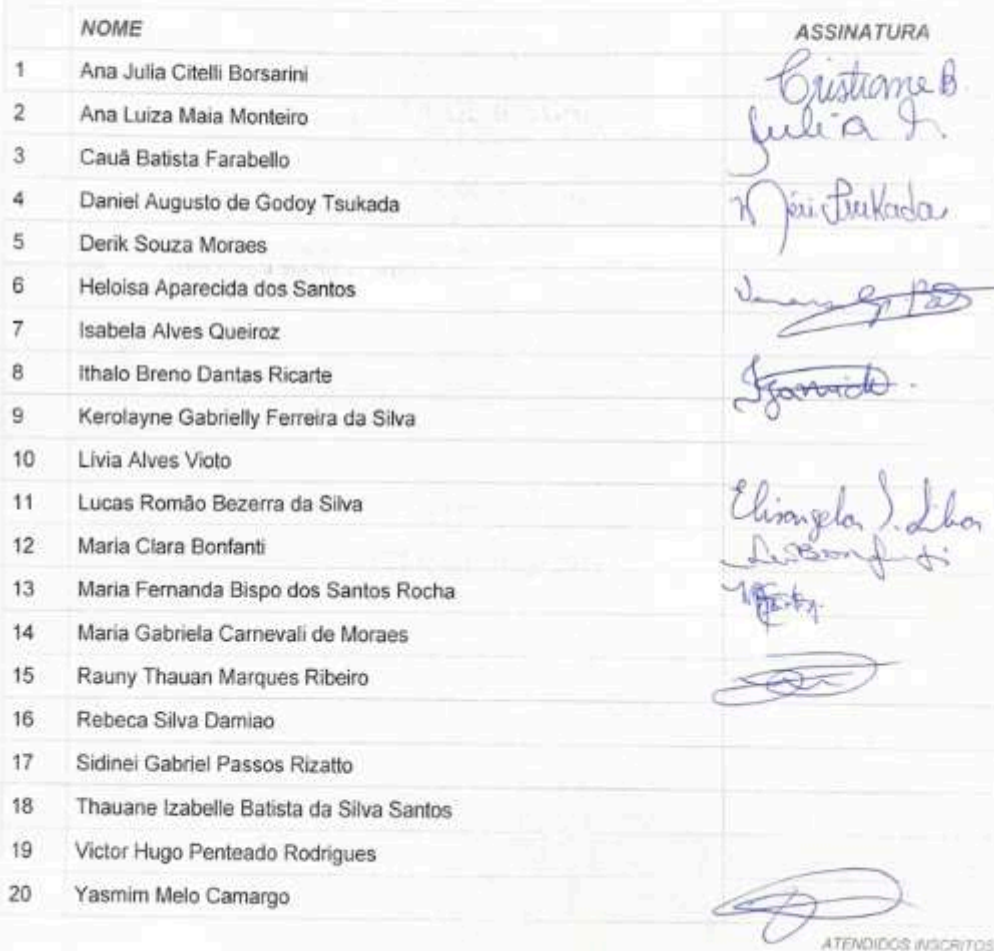 NOME ASSINATURA
1 Ana Julia Citelli Borsarini Cristiane B.
2 Ana Luiza Maia Monteiro Julia
3 Cauã Batista Farabello
4 Daniel Augusto de Godoy Tsukada Meri Tsukada
5 Derik Souza Moraes
6 Heloisa Aparecida dos Santos
7 Isabela Alves Queiroz
8 Ithalo Breno Dantas Ricarte
9 Kerolayne Gabrielly Ferreira da Silva
10 Livia Alves Vioto
11 Lucas Romão Bezerra da Silva Elisangela
12 Maria Clara Bonfanti
13 Maria Fernanda Bispo dos Santos Rocha
14 Maria Gabriela Carnevali de Moraes
15 Rauny Thauan Marques Ribeiro
16 Rebeca Silva Damiao
17 Sidinei Gabriel Passos Rizatto
18 Thauane Izabelle Batista da Silva Santos
19 Victor Hugo Penteado Rodrigues
20 Yasmim Melo Camargo
ATENDIDOS INSCRITOS